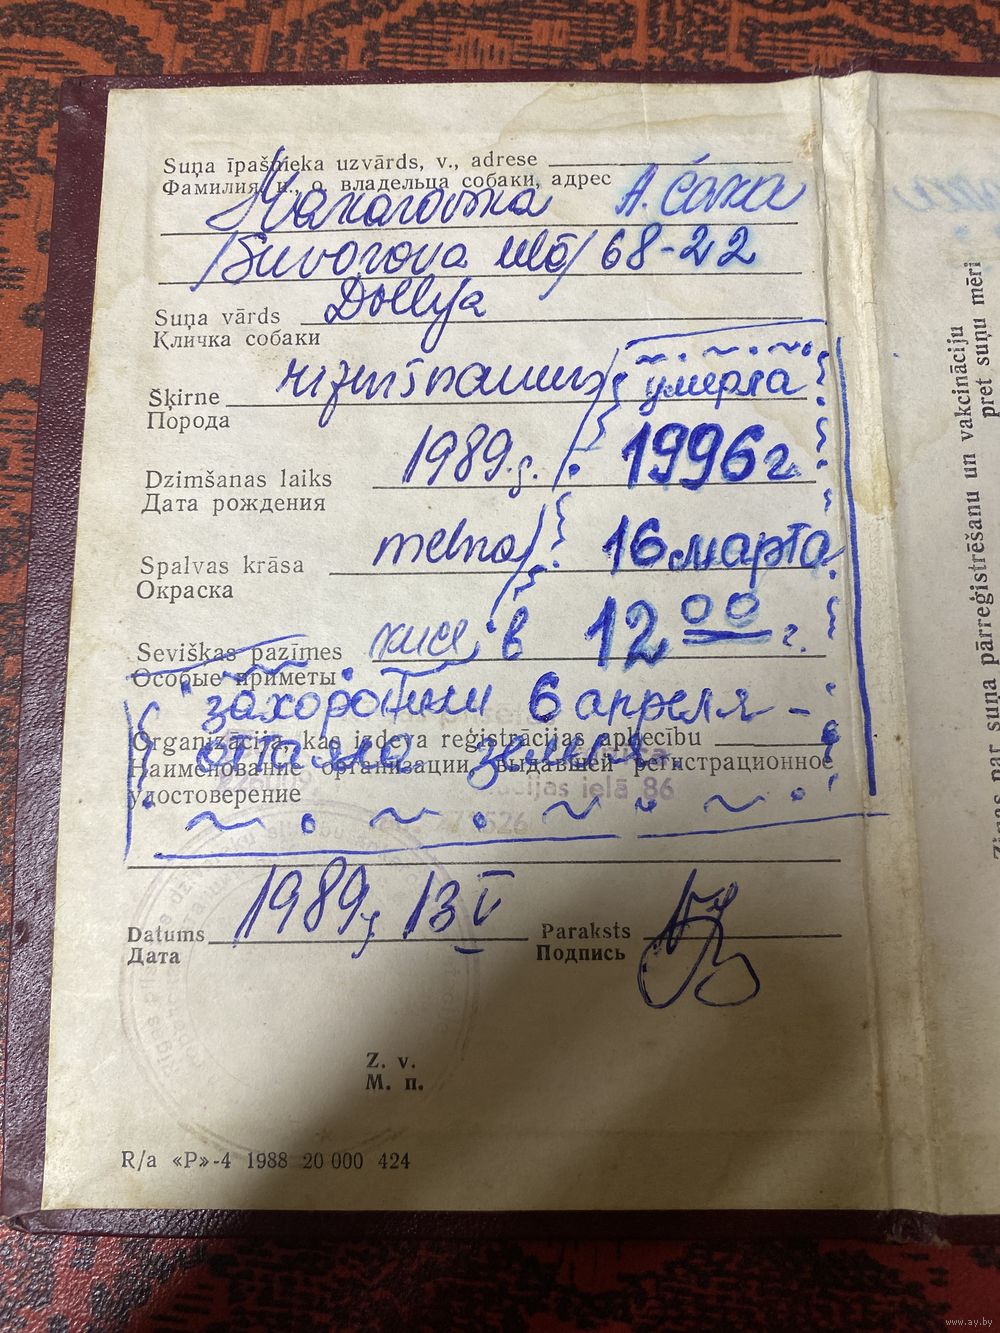 Suņa īpašnieka uzvārds, v., adrese
Фамилия, и., о. владельца собаки, адрес
A.
Suvorova 68-22
Suņa vārds
Dollija
Кличка собаки
умерла
Šķirne
Порода
1989.g.
1996 г
Dzimšanas laiks
Дата рождения
melna
16 марта
Spalvas krāsa
Окраска
в 12 00 г.
Sevišķas pazīmes
Особые приметы
захоротили 6 апреля –
Organizācija, kas izdeva reģistrācijas apliecību
Наименование организации, выдавшей регистрационное
ielā 86
удостоверение
1989g 13 V
Datums
Paraksts
Дата
Подпись
Z. v.
М. п.
R/a «P»-4 1988 20 000 424
Ziņas par suņa pārreģistrēšanu un vakcināciju
pret suņu mēri
www.ay.by